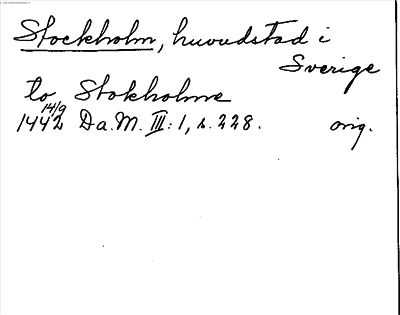 Stockholm, huvudstad i
Sverige
to Stokholme
14/9
1442 Da.M. III:1, s. 228. orig.